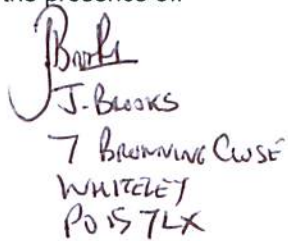 the presence of:
JBrooks
J. BROOKS
7 BROWNING CLOSE
WHITELEY
PO15 7LX